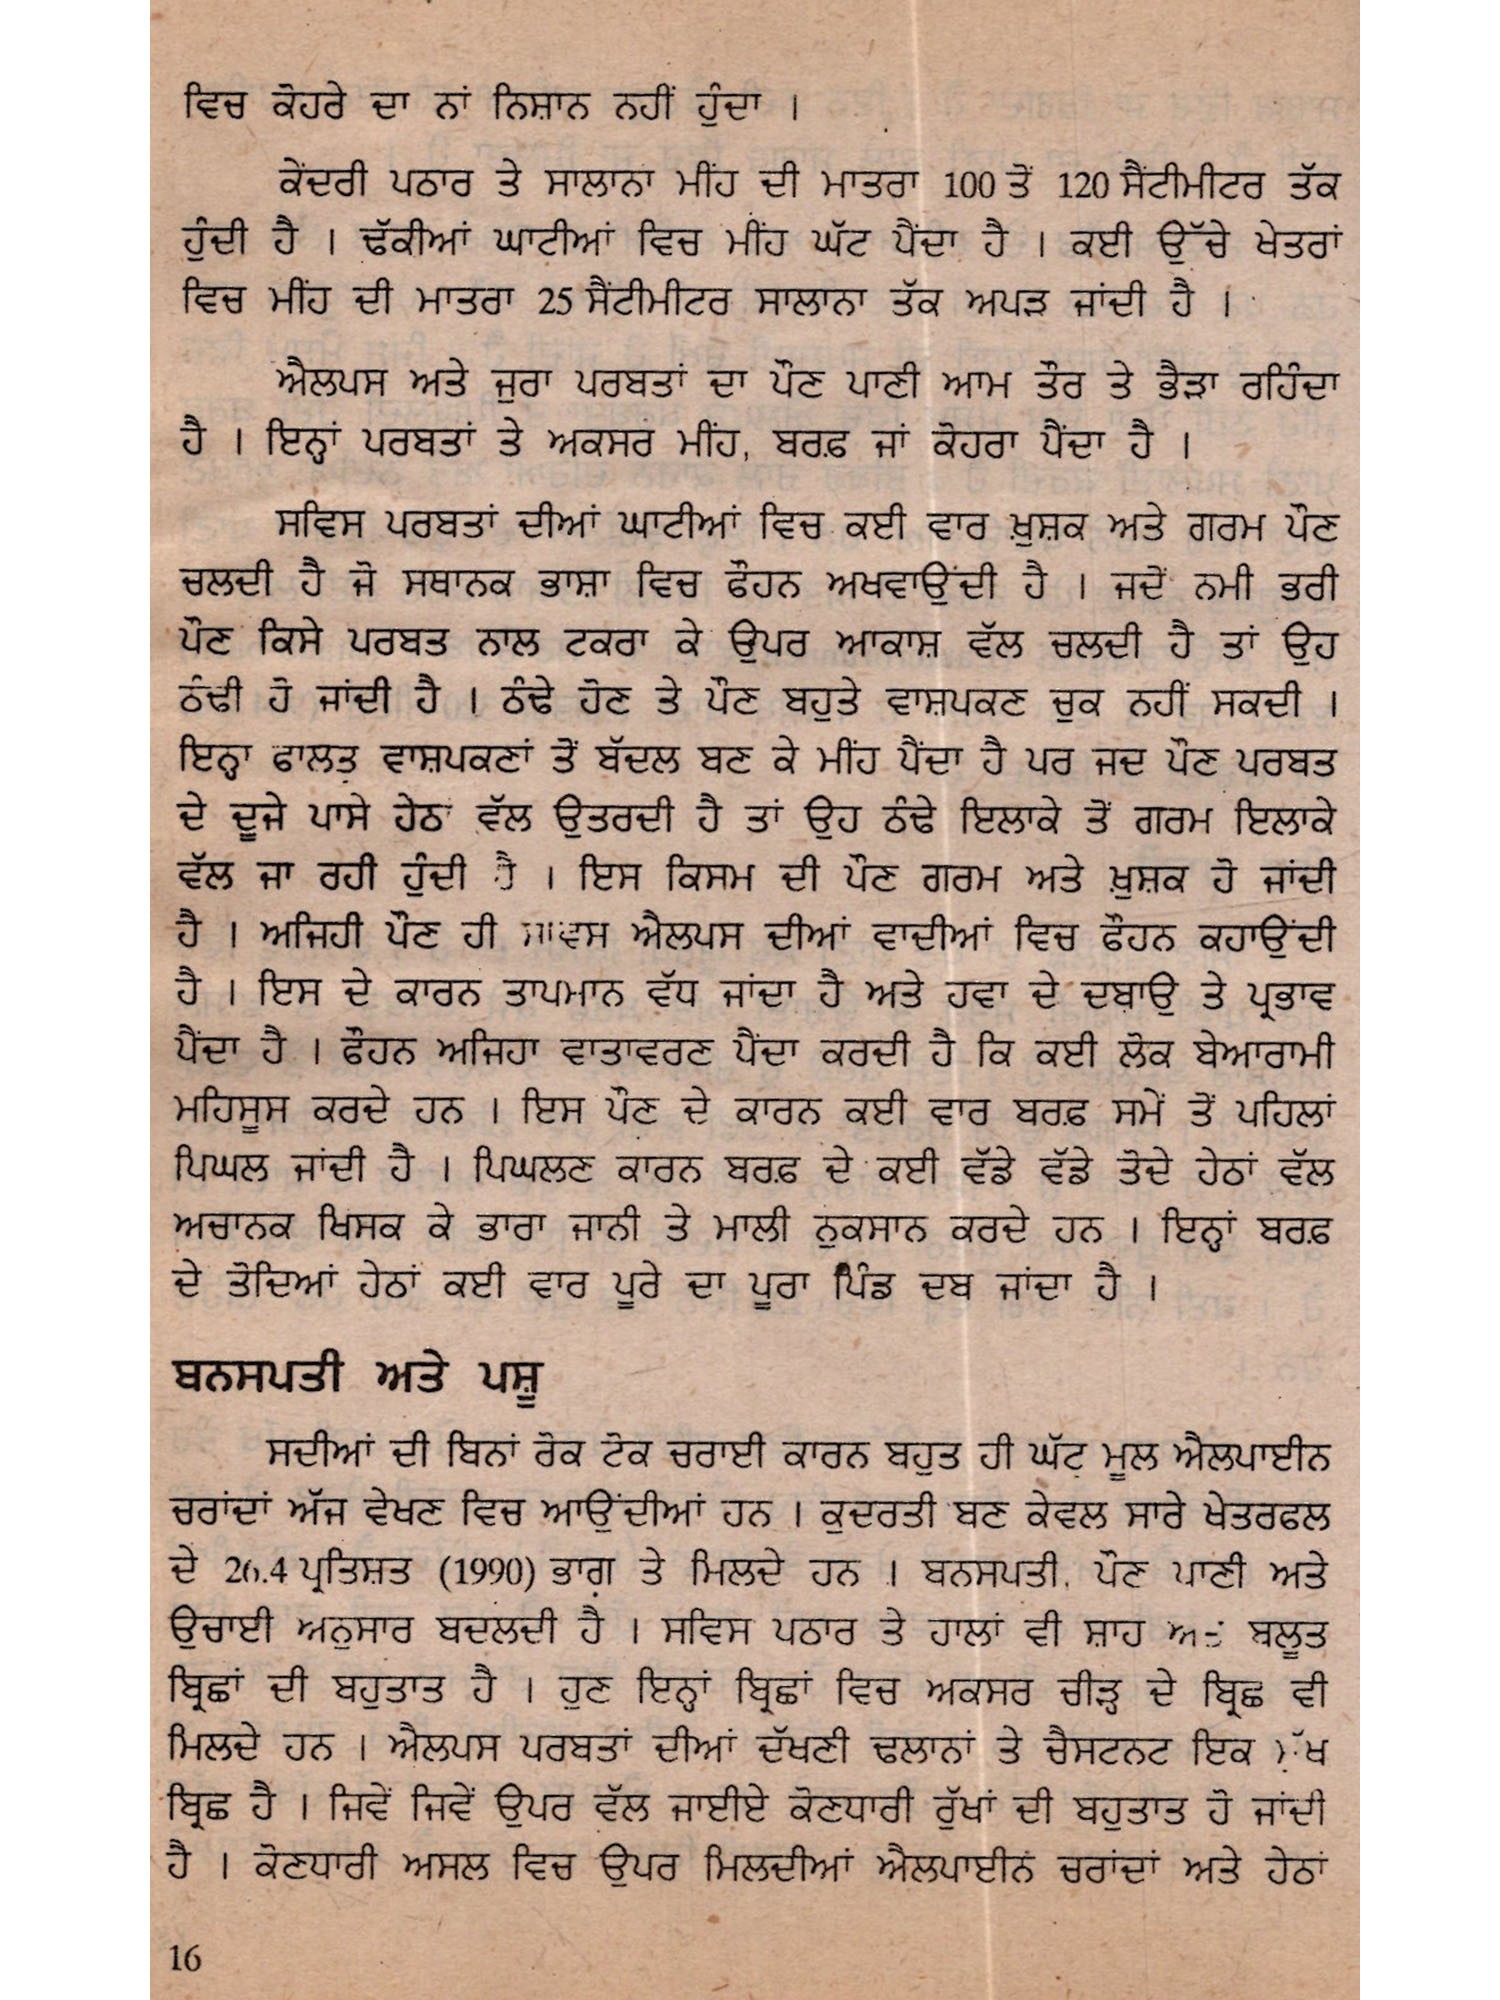 ਵਿਚ ਕੋਹਰੇ ਦਾ ਨਾਂ ਨਿਸ਼ਾਨ ਨਹੀਂ ਹੁੰਦਾ ।
ਕੇਂਦਰੀ ਪਠਾਰ ਤੇ ਸਾਲਾਨਾ ਮੀਂਹ ਦੀ ਮਾਤਰਾ 100 ਤੋਂ 120 ਸੈਂਟੀਮੀਟਰ ਤੱਕ
ਹੁੰਦੀ ਹੈ । ਢੱਕੀਆਂ ਘਾਟੀਆਂ ਵਿਚ ਮੀਂਹ ਘੱਟ ਪੈਂਦਾ ਹੈ । ਕਈ ਉੱਚੇ ਖੇਤਰਾਂ
ਵਿਚ ਮੀਂਹ ਦੀ ਮਾਤਰਾ 25 ਸੈਂਟੀਮੀਟਰ ਸਾਲਾਨਾ ਤੱਕ ਅਪੜ ਜਾਂਦੀ ਹੈ ।
ਐਲਪਸ ਅਤੇ ਜੁਰਾ ਪਰਬਤਾਂ ਦਾ ਪੌਣ ਪਾਣੀ ਆਮ ਤੌਰ ਤੇ ਭੈੜਾ ਰਹਿੰਦਾ
ਹੈ । ਇਨ੍ਹਾਂ ਪਰਬਤਾਂ ਤੇ ਅਕਸਰ ਮੀਂਹ, ਬਰਫ਼ ਜਾਂ ਕੋਹਰਾ ਪੈਂਦਾ ਹੈ ।
ਸਵਿਸ ਪਰਬਤਾਂ ਦੀਆਂ ਘਾਟੀਆਂ ਵਿਚ ਕਈ ਵਾਰ ਖ਼ੁਸ਼ਕ ਅਤੇ ਗਰਮ ਪੌਣ
ਚਲਦੀ ਹੈ ਜੋ ਸਥਾਨਕ ਭਾਸ਼ਾ ਵਿਚ ਫੌਹਨ ਅਖਵਾਉਂਦੀ ਹੈ । ਜਦੋਂ ਨਮੀ ਭਰੀ
ਪੌਣ ਕਿਸੇ ਪਰਬਤ ਨਾਲ ਟਕਰਾ ਕੇ ਉਪਰ ਆਕਾਸ਼ ਵੱਲ ਚਲਦੀ ਹੈ ਤਾਂ ਉਹ
ਠੰਢੀ ਹੋ ਜਾਂਦੀ ਹੈ । ਠੰਢੇ ਹੋਣ ਤੇ ਪੌਣ ਬਹੁਤੇ ਵਾਸ਼ਪਕਣ ਚੁਕ ਨਹੀਂ ਸਕਦੀ ।
ਇਨ੍ਹਾ ਫਾਲਤੂ ਵਾਸ਼ਪਕਣਾਂ ਤੋਂ ਬੱਦਲ ਬਣ ਕੇ ਮੀਂਹ ਪੈਂਦਾ ਹੈ ਪਰ ਜਦ ਪੌਣ ਪਰਬਤ
ਦੇ ਦੂਜੇ ਪਾਸੇ ਹੇਠਾਂ ਵੱਲ ਉਤਰਦੀ ਹੈ ਤਾਂ ਉਹ ਠੰਢੇ ਇਲਾਕੇ ਤੋਂ ਗਰਮ ਇਲਾਕੇ
ਵੱਲ ਜਾ ਰਹੀ ਹੁੰਦੀ ਹੈ । ਇਸ ਕਿਸਮ ਦੀ ਪੌਣ ਗਰਮ ਅਤੇ ਖ਼ੁਸ਼ਕ ਹੋ ਜਾਂਦੀ
ਹੈ । ਅਜਿਹੀ ਪੌਣ ਹੀ ਐਲਪਸ ਦੀਆਂ ਵਾਦੀਆਂ ਵਿਚ ਫੌਹਨ ਕਹਾਉਂਦੀ
ਹੈ । ਇਸ ਦੇ ਕਾਰਨ ਤਾਪਮਾਨ ਵੱਧ ਜਾਂਦਾ ਹੈ ਅਤੇ ਹਵਾ ਦੇ ਦਬਾਉ ਤੇ ਪ੍ਰਭਾਵ
ਪੈਂਦਾ ਹੈ । ਫੌਹਨ ਅਜਿਹਾ ਵਾਤਾਵਰਣ ਪੈਂਦਾ ਕਰਦੀ ਹੈ ਕਿ ਕਈ ਲੋਕ ਬੇਆਰਾਮੀ
ਮਹਿਸੂਸ ਕਰਦੇ ਹਨ । ਇਸ ਪੌਣ ਦੇ ਕਾਰਨ ਕਈ ਵਾਰ ਬਰਫ਼ ਸਮੇਂ ਤੋਂ ਪਹਿਲਾਂ
ਪਿਘਲ ਜਾਂਦੀ ਹੈ । ਪਿਘਲਣ ਕਾਰਨ ਬਰਫ਼ ਦੇ ਕਈ ਵੱਡੇ ਵੱਡੇ ਤੋਦੇ ਹੇਠਾਂ ਵੱਲ
ਅਚਾਨਕ ਖਿਸਕ ਕੇ ਭਾਰਾ ਜਾਨੀ ਤੇ ਮਾਲੀ ਨੁਕਸਾਨ ਕਰਦੇ ਹਨ । ਇਨ੍ਹਾਂ ਬਰਫ਼
ਦੇ ਤੋਦਿਆਂ ਹੇਠਾਂ ਕਈ ਵਾਰ ਪੂਰੇ ਦਾ ਪੂਰਾ ਪਿੰਡ ਦਬ ਜਾਂਦਾ ਹੈ ।
ਬਨਸਪਤੀ ਅਤੇ ਪਸ਼ੂ
ਸਦੀਆਂ ਦੀ ਬਿਨਾਂ ਰੋਕ ਟੋਕ ਚਰਾਈ ਕਾਰਨ ਬਹੁਤ ਹੀ ਘੱਟ ਮੂਲ ਐਲਪਾਈਨ
ਚਰਾਂਦਾਂ ਅੱਜ ਵੇਖਣ ਵਿਚ ਆਉਂਦੀਆਂ ਹਨ । ਕੁਦਰਤੀ ਬਣ ਕੇਵਲ ਸਾਰੇ ਖੇਤਰਫਲ
ਦੇ 26.4 ਪ੍ਰਤਿਸ਼ਤ (1990) ਭਾਗ ਤੇ ਮਿਲਦੇ ਹਨ । ਬਨਸਪਤੀ, ਪੌਣ ਪਾਣੀ ਅਤੇ
ਉਚਾਈ ਅਨੁਸਾਰ ਬਦਲਦੀ ਹੈ । ਸਵਿਸ ਪਠਾਰ ਤੇ ਹਾਲਾਂ ਵੀ ਸ਼ਾਹ ਅਤੇ ਬਲੂਤ
ਬ੍ਰਿਛਾਂ ਦੀ ਬਹੁਤਾਤ ਹੈ । ਹੁਣ ਇਨ੍ਹਾਂ ਬ੍ਰਿਛਾਂ ਵਿਚ ਅਕਸਰ ਚੀੜ੍ਹ ਦੇ ਬ੍ਰਿਛ ਵੀ
ਮਿਲਦੇ ਹਨ । ਐਲਪਸ ਪਰਬਤਾਂ ਦੀਆਂ ਦੱਖਣੀ ਢਲਾਨਾਂ ਤੇ ਚੈਸਟਨਟ ਇਕ
ਬ੍ਰਿਛ ਹੈ । ਜਿਵੇਂ ਜਿਵੇਂ ਉਪਰ ਵੱਲ ਜਾਈਏ ਕੋਣਧਾਰੀ ਰੁੱਖਾਂ ਦੀ ਬਹੁਤਾਤ ਹੋ ਜਾਂਦੀ
ਹੈ । ਕੋਣਧਾਰੀ ਅਸਲ ਵਿਚ ਉਪਰ ਮਿਲਦੀਆਂ ਐਲਪਾਈਨ ਚਰਾਂਦਾਂ ਅਤੇ ਹੇਠਾਂ
16